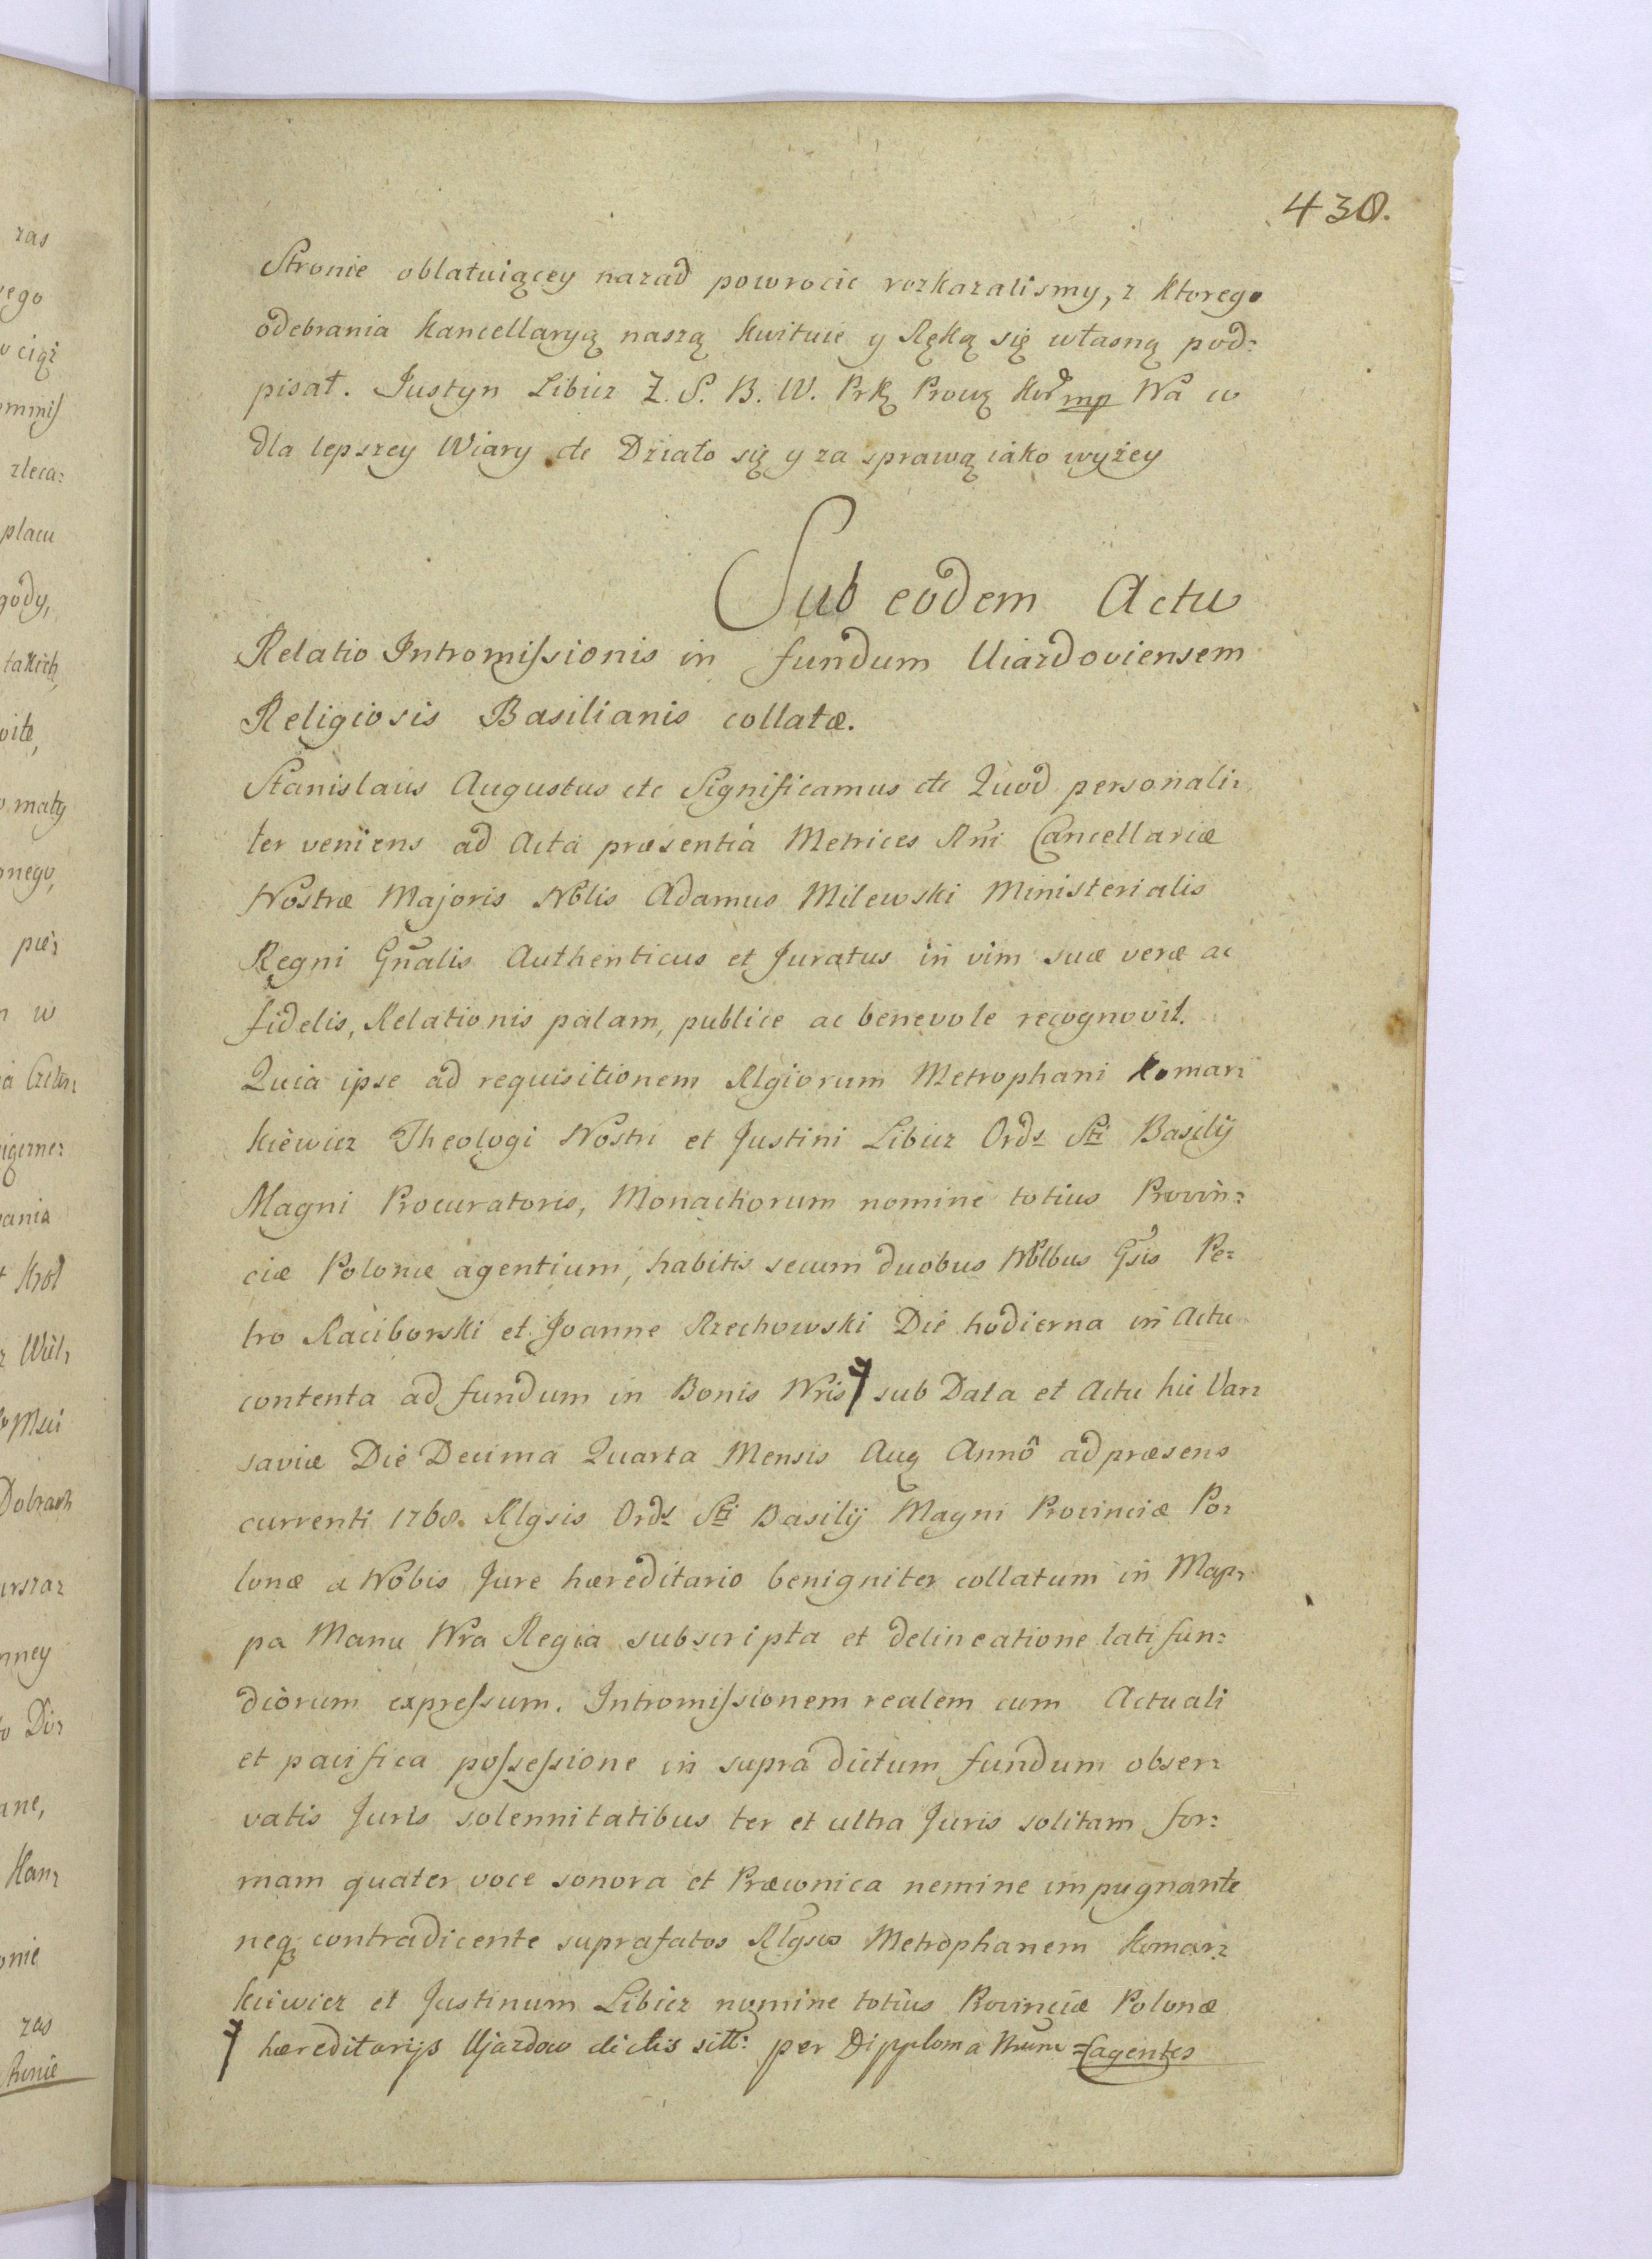 438.
Stronie oblatuiącey nazad powrocic rozkazalismy, z ktorego
odebrania kancellaryą naszą kwituie y Ręką się własną pod:
pisał. Justyn Libicz Z. S. B. W. mp Na w
dla lepszey Wiary etc Działo się y za sprawą iako wyżey
Sub eodem Actu
Relatio Intromissionis in fundum Uiazdoviensem
Religiosis Basilianis collatæ.
Stanislaus Augustus etc Significamus etc Quod personali:
ter veniens ad Acta præsentia Metrices Rni Cancellariæ
Nostræ Majoris Nblis Adamus Milewski Ministerialis
Regni Gñalis Authenticus et Juratus in vim suæ veræ ac
fidelis, Relationis palam, publice ac benevole recognovit.
Quia ipse ad requisitionem Rlgiorum Metrophani Komar:
kiewicz Theologi Nostri et Justini Libicz Ords Sti Basilij
Magni Procuratoris, Monachorum nomine totius Provin:
ciæ Polonæ agentium, habitis secum duobus Nblbus Gsis Pe:
tro Raciborski et Joanne Rzechowski Die hodierna in Actu
contenta ad fundum in Bonis Nris sub Data et Actu hic Var:
saviæ Die Decima Quarta Mensis Aug Annô ad præsens
currenti 1768. Rlgsis Ords Sti Basilij Magni Provinciæ Po:
lonæ a Nobis Jure hæreditario benigniter collatum in Map:
pa Manu Nra Regia subscripta et delineatione latifun:
diorum expressum. Intromissionem realem cum Actuali
et pacifica possessione in supra dictum fundum obser:
vatis Juris solennitatibus ter et ultra Juris solitam for:
mam quater voce sonora et Præconica nemine impugnante
neq contradicente suprafatos Rlgsos Metrophanem Komar:
kiewicz et Justinum Libicz nomine totius Provinciæ Polonæ
hæreditarijs Ujazdow dictis sitt: per Dipploma Nrum agentes